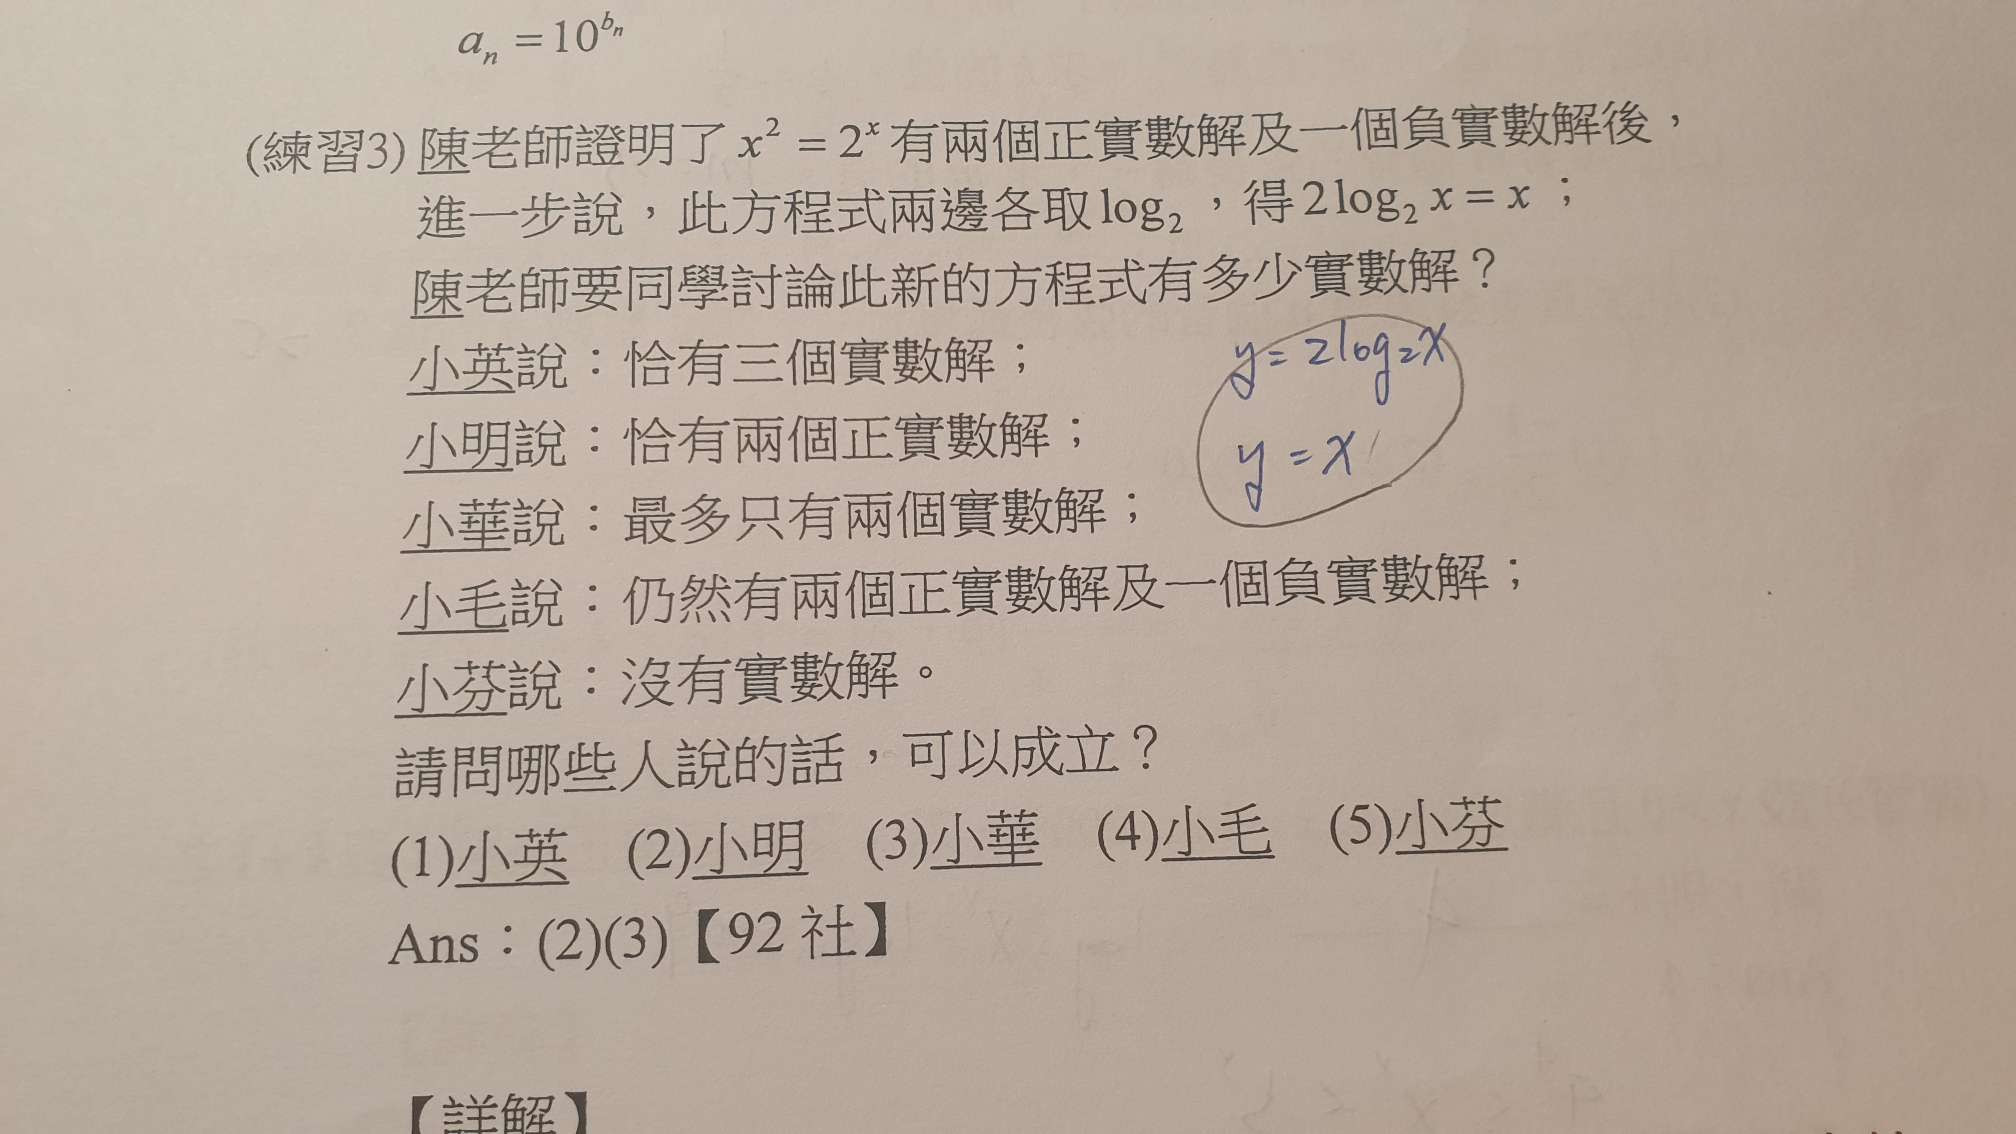 aₙ = 10^{bₙ}
(練習3) 陳老師證明了 x² = 2ˣ 有兩個正實數解及一個負實數解後，
進一步說，此方程式兩邊各取 log₂ ，得 2log₂ x = x ；
陳老師要同學討論此新的方程式有多少實數解？
小英說：恰有三個實數解；
y = 2log₂x
小明說：恰有兩個正實數解；
y = x
小華說：最多只有兩個實數解；
小毛說：仍然有兩個正實數解及一個負實數解；
小芬說：沒有實數解。
請問哪些人說的話，可以成立？
(1)小英 (2)小明 (3)小華 (4)小毛 (5)小芬
Ans：(2)(3)【92 社】
【詳解】